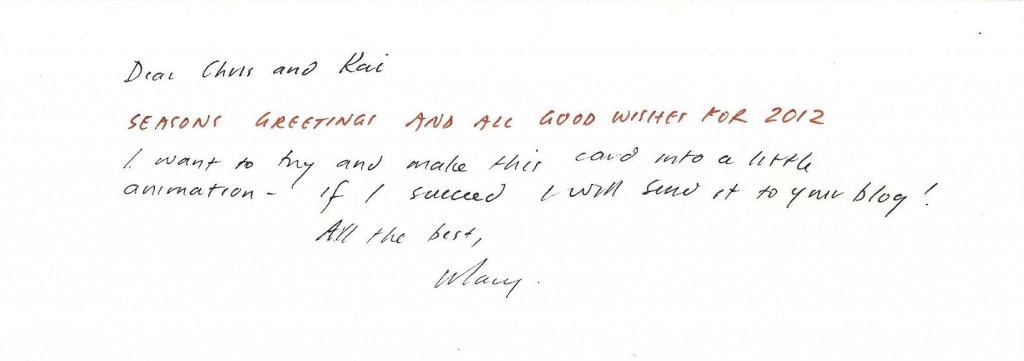 Dear Chris and Kai
SEASONS GREETINGS AND ALL GOOD WISHES FOR 2012
I want to try and make this card into a little
animation - if I succeed I will send it to your blog!
All the best,